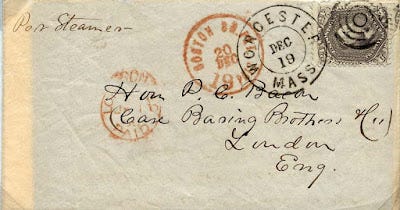 Per Steamer
BOSTON
20
DEC
19
WORCESTER
DEC
19
MASS
PAID
Hon P. C. Bacon
Care Baring Brothers &
London
Eng.